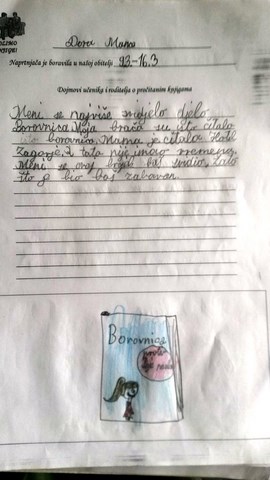 Dora Mamo
Naprtnjača je boravila u našoj obitelji 9.3.-16.3
Dojmovi učenika i roditelja o pročitanim knjigama
Meni se najviše svidjelo djelo
Borovnica. Moja braća su isto čitala
borovnica. Mama je čitala Hotel
Zagorje, a tata nije imao vremena.
Meni se ovaj baš svidio, zato
što je bio baš zabavan.
Borovnica